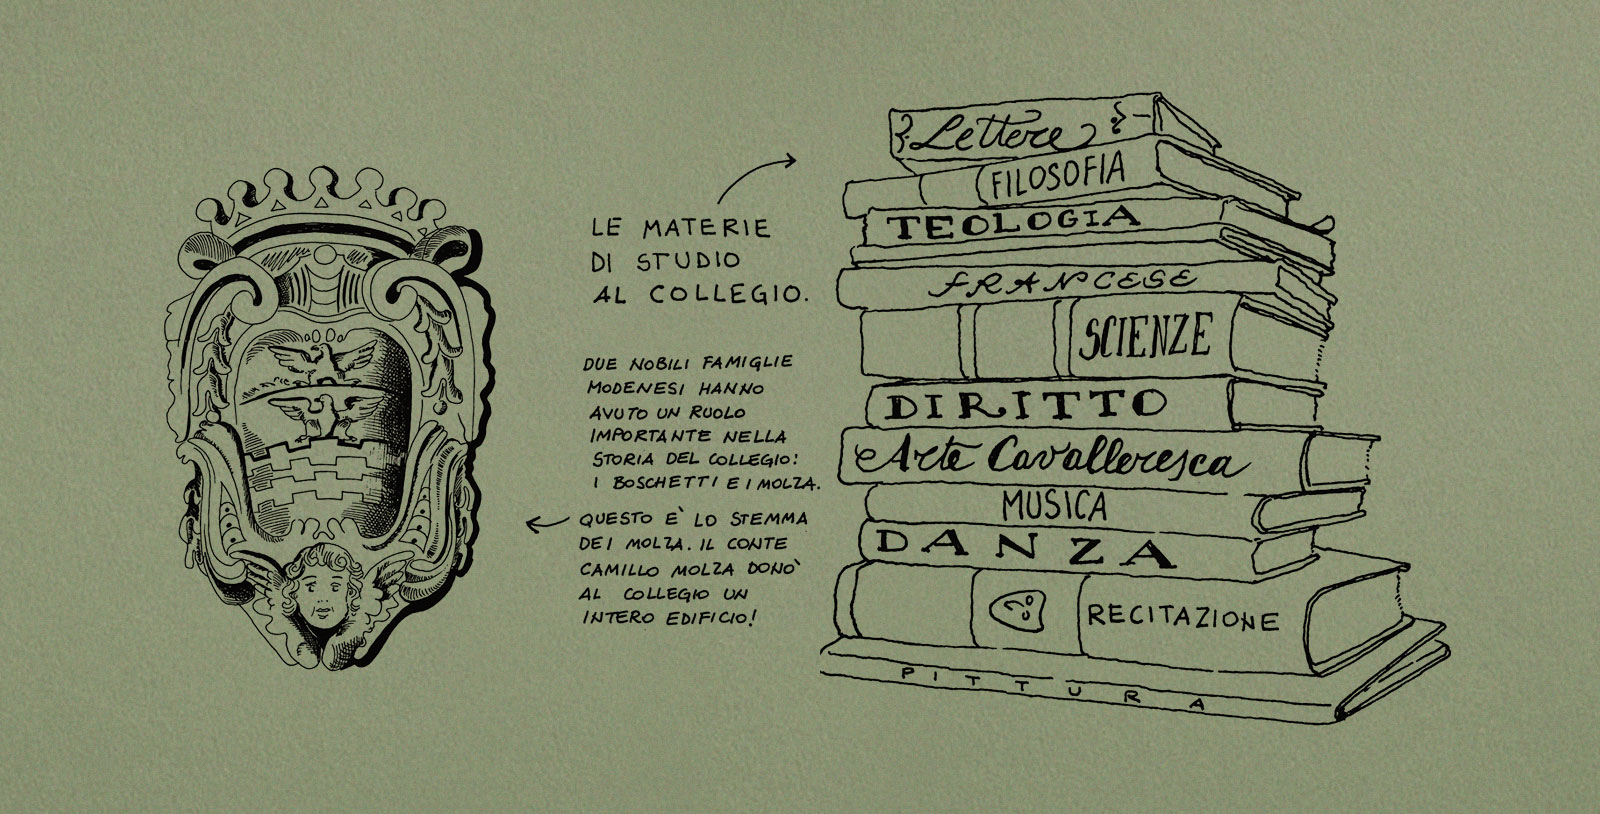 LE MATERIE
DI STUDIO
AL COLLEGIO.
DUE NOBILI FAMIGLIE
MODENESI HANNO
AVUTO UN RUOLO
IMPORTANTE NELLA
STORIA DEL COLLEGIO:
I BOSCHETTI E I MOLZA.
QUESTO E' LO STEMMA
DEI MOLZA. IL CONTE
CAMILLO MOLZA DONO'
AL COLLEGIO UN
INTERO EDIFICIO!
Lettere
FILOSOFIA
TEOLOGIA
FRANCESE
SCIENZE
DIRITTO
Arte Cavalleresca
MUSICA
DANZA
RECITAZIONE
PITTURA